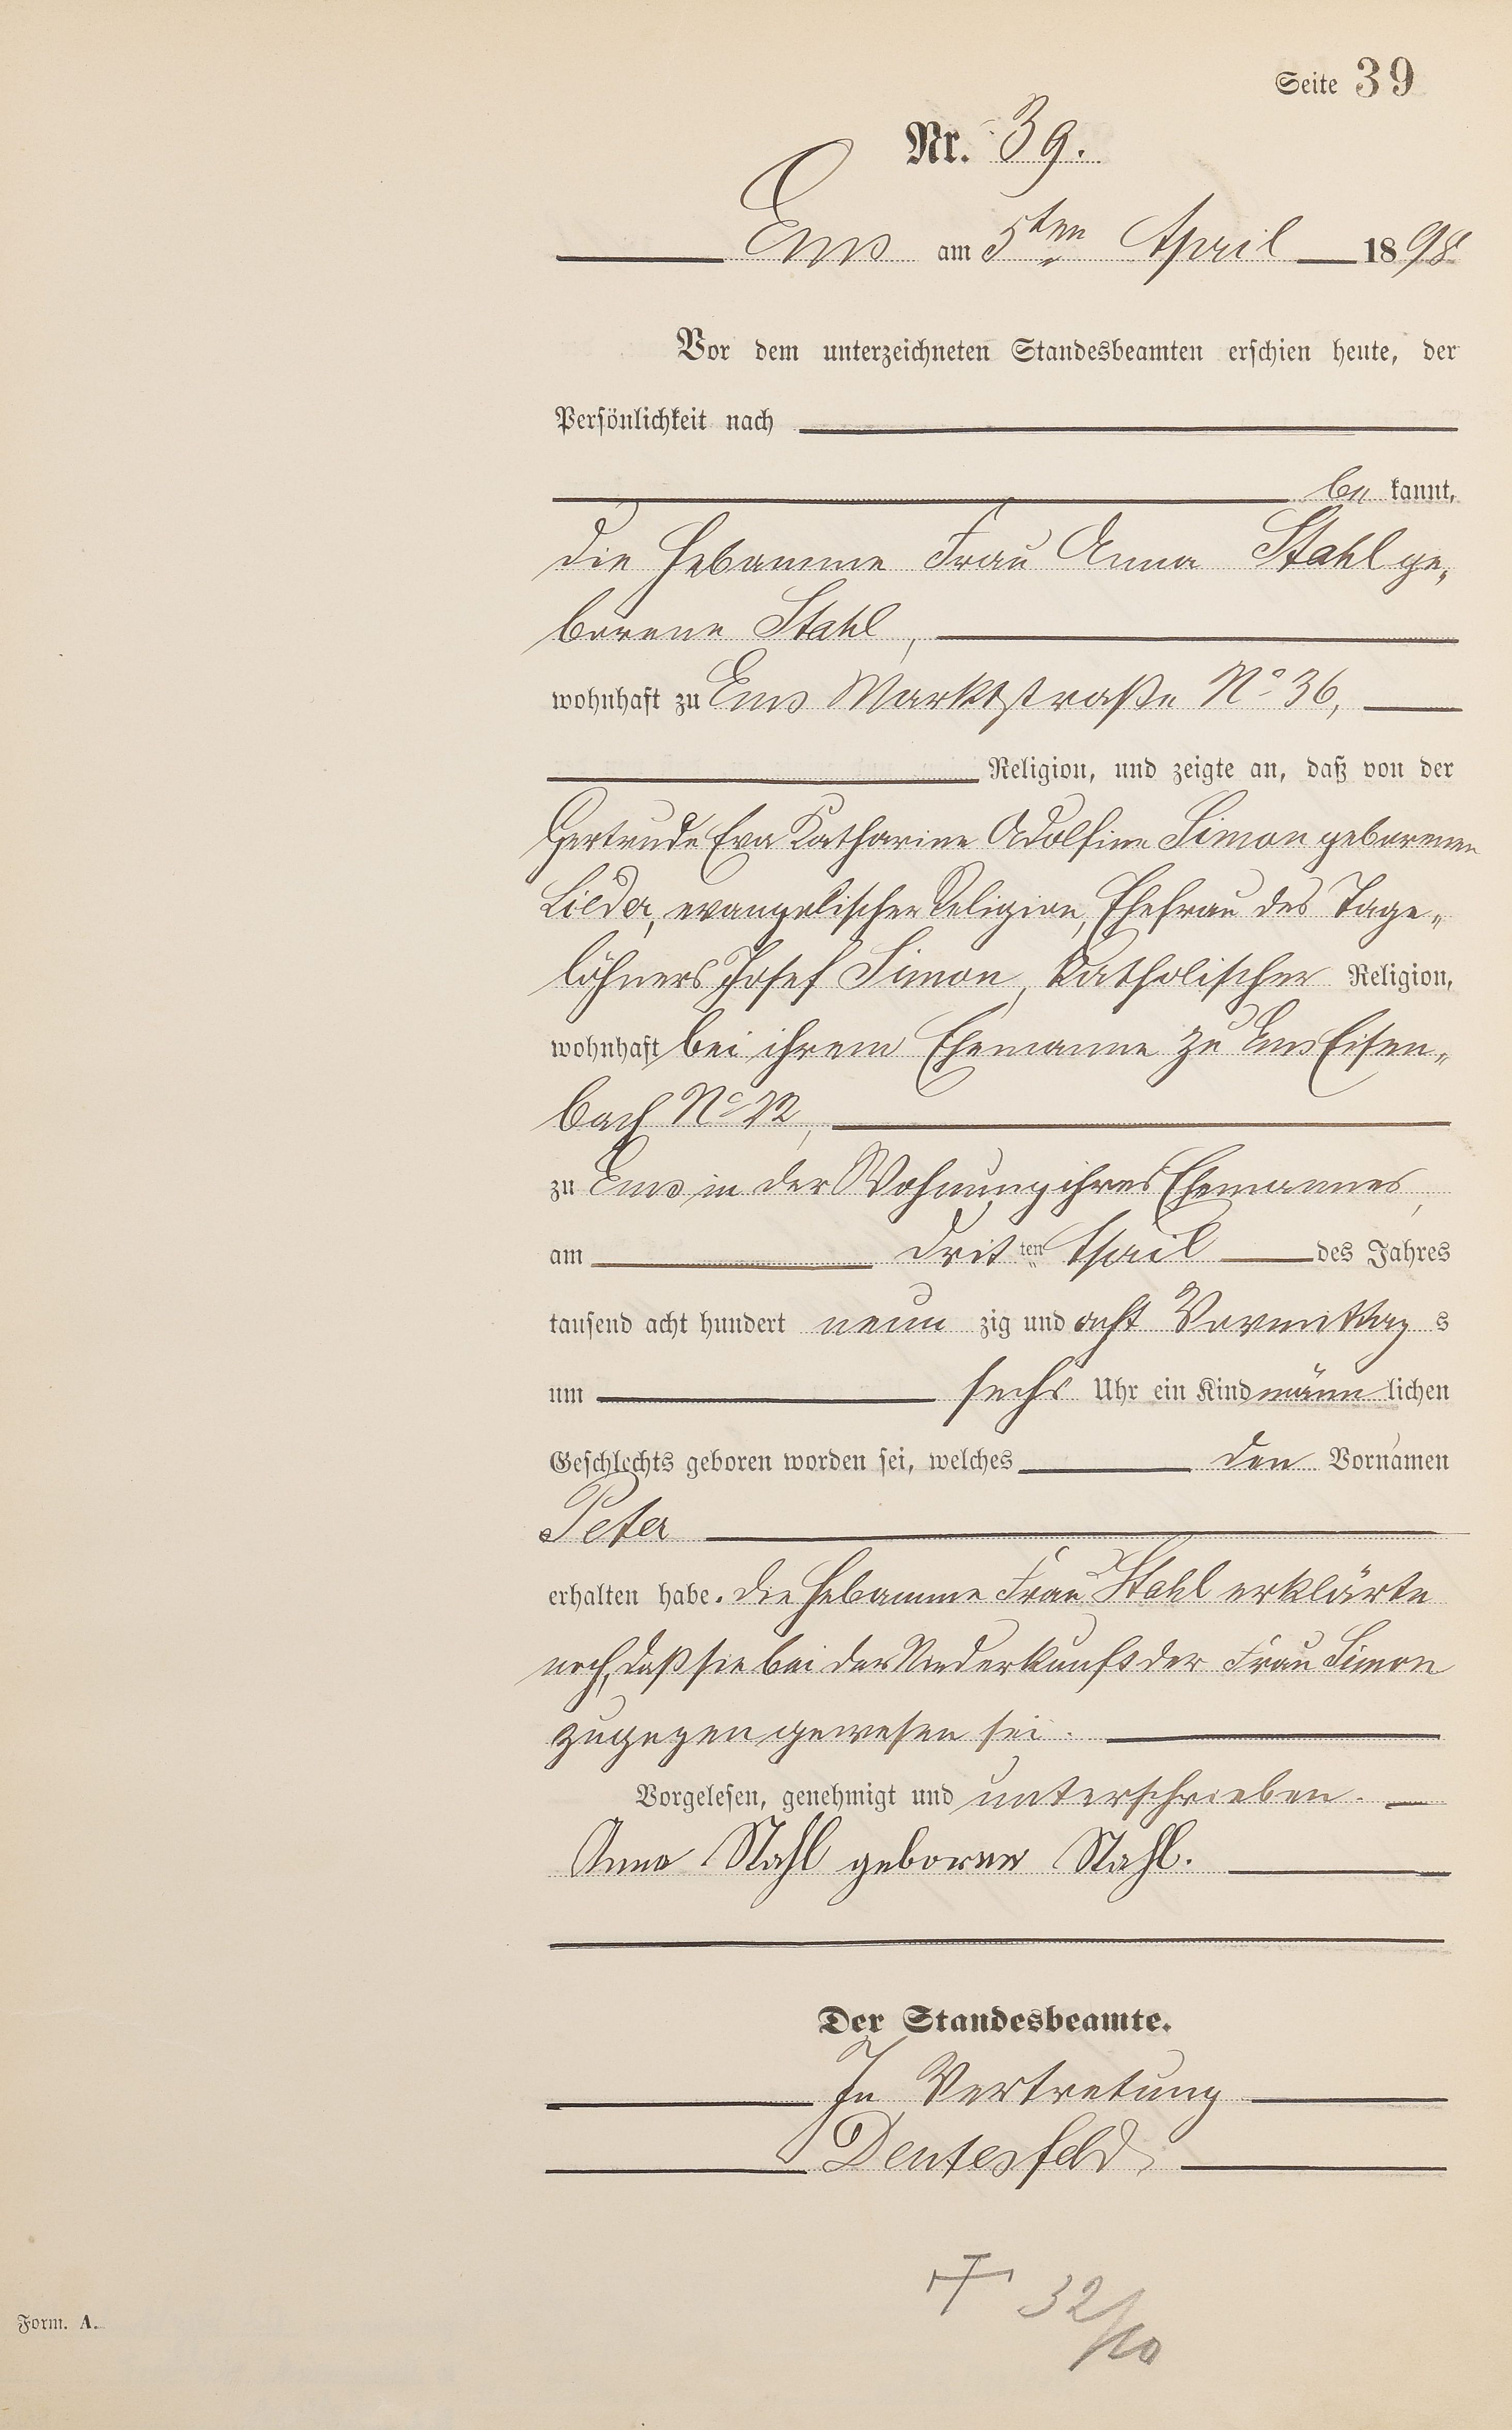 Seite 39
Nr. 39.
Ems am 5ten April 1898
Vor dem unterzeichneten Standesbeamten erschien heute, der
Persönlichkeit nach
be kannt,
die Hebamme Frau Anna Stahl ge„
borene Stahl,
wohnhaft zu Ems Marktstraße No 36,
Religion, und zeigte an, daß von der
Gertrude Eva Katharine Adolfine Simon geborenen
evangelischer Religion, Ehefrau des Tage„
löhners Josef Simon, katholischer Religion,
wohnhaft bei ihrem Ehemanne zu Ems Eisen„
bach No
zu Ems in der Wohnung ihres Ehemannes,
am drit ten April des Jahres
tausend acht hundert neun zig und acht Vormittag s
um sechs Uhr ein Kind männ lichen
Geschlechts geboren worden sei, welches den Vornamen
Peter
erhalten habe. Die Hebamme Frau Stahl erklärte
noch, daß sie bei der Niederkunft der Frau Simon
zugegen gewesen sei.
Vorgelesen, genehmigt und unterschrieben.
Anna Stahl geborene Stahl.
Der Standesbeamte.
In Vertretung
32/10
Form. A.